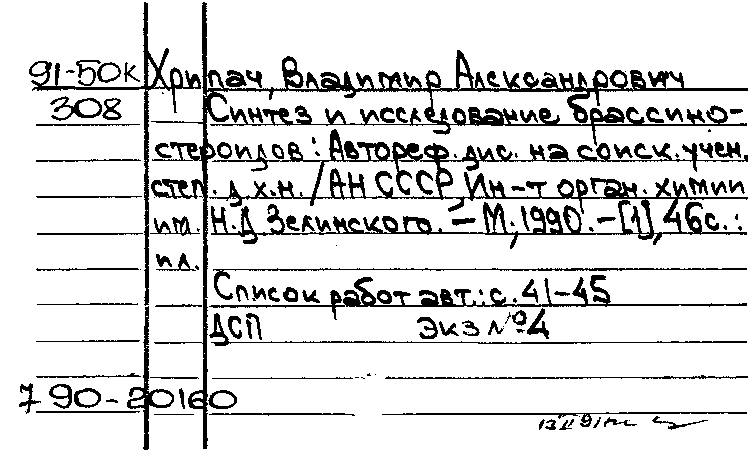 91-50к Хрипач, Владимир Александрович
308 Синтез и исследование брассино-
стероидов: Автореф. дис. на соиск. учен.
степ. д.х.н. / АН СССР, Ин-т орган. химии
им. Н.Д Зелинского. - М., 1990. - [1], 46с.:
ил.
Список работ авт.: с. 41-45
ДСП Экз №4
7 90-20160